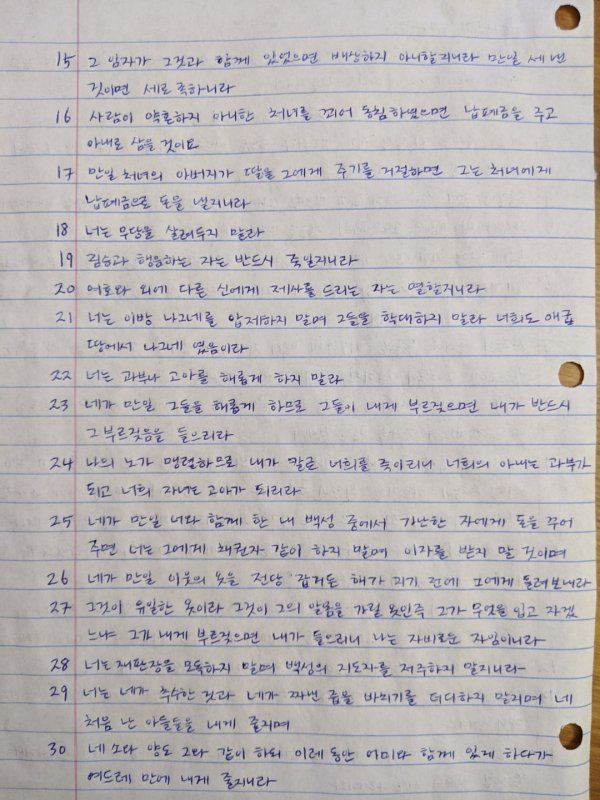 15 그 임자가 그것과 함께 있었으면 배상하지 아니할지니라 만일 세 낸
것이면 세로 족하니라
16 사람이 약혼하지 아니한 처녀를 꾀어 동침하였으면 납폐금을 주고
아내로 삼을 것이요
17 만일 처녀의 아버지가 딸을 그에게 주기를 거절하면 그는 처녀에게
납폐금으로 돈을 낼지니라
18 너는 무당을 살려두지 말라
19 짐승과 행음하는 자는 반드시 죽일지니라
20 여호와 외에 다른 신에게 제사를 드리는 자는 멸할지니라
21 너는 이방 나그네를 압제하지 말며 그들을 학대하지 말라 너희도 애굽
땅에서 나그네 였음이라
22 너는 과부나 고아를 해롭게 하지 말라
23 네가 만일 그들을 해롭게 하므로 그들이 내게 부르짖으면 내가 반드시
그 부르짖음을 들으리라
24 나의 노가 맹렬하므로 내가 칼로 너희를 죽이리니 너희의 아내는 과부가
되고 너희 자녀는 고아가 되리라
25 네가 만일 너와 함께 한 내 백성 중에서 가난한 자에게 돈을 꾸어
주면 너는 그에게 채권자 같이 하지 말며 이자를 받지 말 것이며
26 네가 만일 이웃의 옷을 전당 잡거든 해가 지기 전에 그에게 돌려보내라
27 그것이 유일한 옷이라 그것이 그의 알몸을 가릴 옷인즉 그가 무엇을 입고 자겠
느냐 그가 내게 부르짖으면 내가 들으리니 나는 자비로운 자임이니라
28 너는 재판장을 모독하지 말며 백성의 지도자를 저주하지 말지니라
29 너는 네가 추수한 것과 네가 짜낸 즙을 바치기를 더디하지 말지며 네
처음 난 아들들을 내게 줄지며
30 네 소와 양도 그와 같이 하되 이레 동안 어미와 함께 있게 하다가
여드레 만에 내게 줄지니라